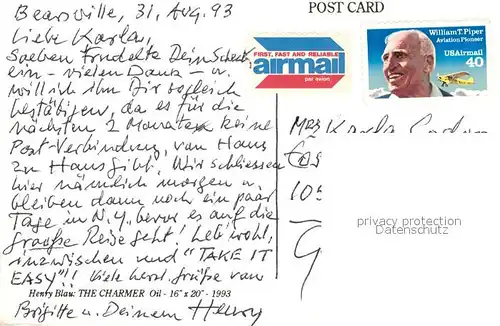 Bearsville, 31. Aug. 93
Liebe Karla,
Soeben trudelte Dein Scheck
ein - vielen Dank - u.
will ich ihn Dir sogleich
bestätigen, da es für die
nächsten 2 Monate keine
Post-Verbindung von Haus
zu Haus gibt. Wir schliessen
hier nämlich morgen u.
bleiben dann noch ein paar
Tage in N.Y., bevor es auf die
große Reise geht! Leb wohl,
inzwischen und "TAKE IT
EASY"!! Viele herzl. Grüße von
Henry Blau: THE CHARMER Oil - 16" x 20" - 1993
Brigitte u. Deinem Henry
POST CARD
FIRST, FAST AND RELIABLE
airmail
par avion
William T. Piper
Aviation Pioneer
USAirmail
40
Mrs Karla
privacy protection
Datenschutz